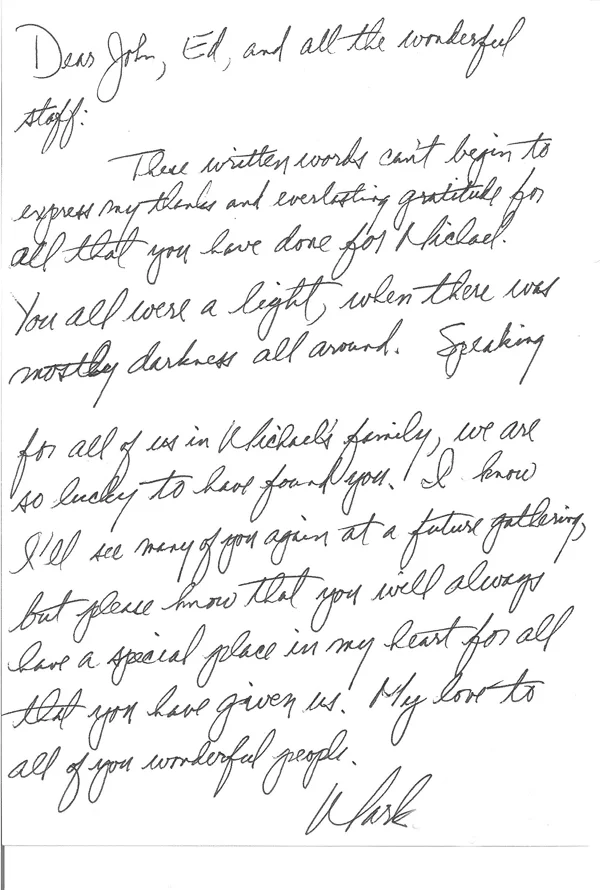 Dear John, Ed, and all the wonderful
staff:
These written words can't begin to
express my thanks and everlasting gratitude for
all that you have done for Michael.
You all were a light, when there was
mostly darkness all around. Speaking
for all of us in Michael's family, we are
so lucky to have found you! I know
I'll see many of you again at a future gathering,
but please know that you will always
have a special place in my heart for all
that you have given us! My love to
all of you wonderful people.
Mark